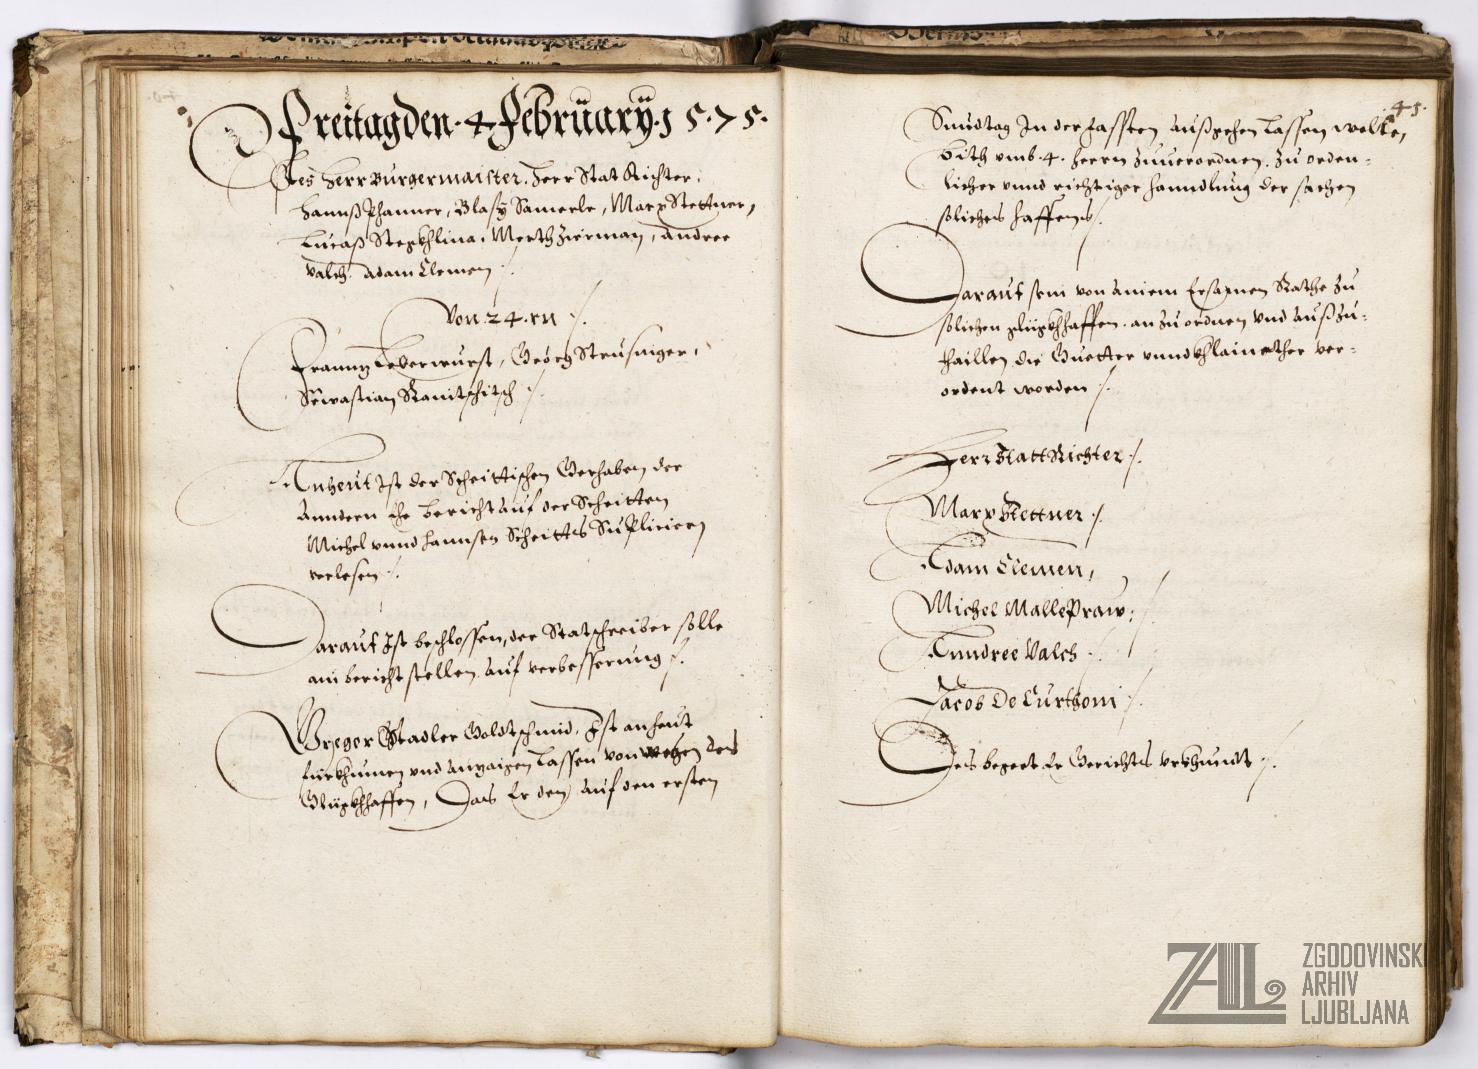 Freitag den 4 February 1575.
Des Herr Burgermaister, Herr Stat Richter,
Hannß Phanner, Blasy Samerle, Marx Stettner,
Lucaß Stepkhlina, Merth Zierman, Andree
Valch, Adam Clemen ./.
Von 24.rn ./.
Frannz Leberwurst, Georg Streusniger,
Sewastian Ranitschitsch ./.
Anheut Ist der Scheittischen Gerhaben der
Anndern bericht auf der Scheitten
Michel unnd Hannsen Scheitts Supliciern
verlesen ./.
Darauf Ist beschlossen, der Statschreiber solle
ain bericht stellen auf verbesserung ./.
Gregor Stadler Goldtschmid, Ist anheut
fürkhumen und anzaigen lassen von wegen des
Glückhhaffen, Das Er den auf den ersten
.45.
Sundtag In der Fassten außgehen lassen welle,
Bith umb .4. herrn zuuerordnen, zu orden-
licher unnd richtiger hanndlung der sachen
soliches haffens ./.
Darauf sein von ainem Ersamen Rathe zu
solichen glückhhaffen anzuordnen und außzu-
thaillen die Guetter unnd khlainether ver-
ordent worden ./.
Herr Statt Richter ./.
Marx Stettner ./.
Adam Clemen,
Michel Mallepraw ./.
Anndree Valch ./.
Jacob De Curthoni ./.
Des begert Er Gerichts urkhundt ./.
ZAL
ZGODOVINSKI
ARHIV
LJUBLJANA